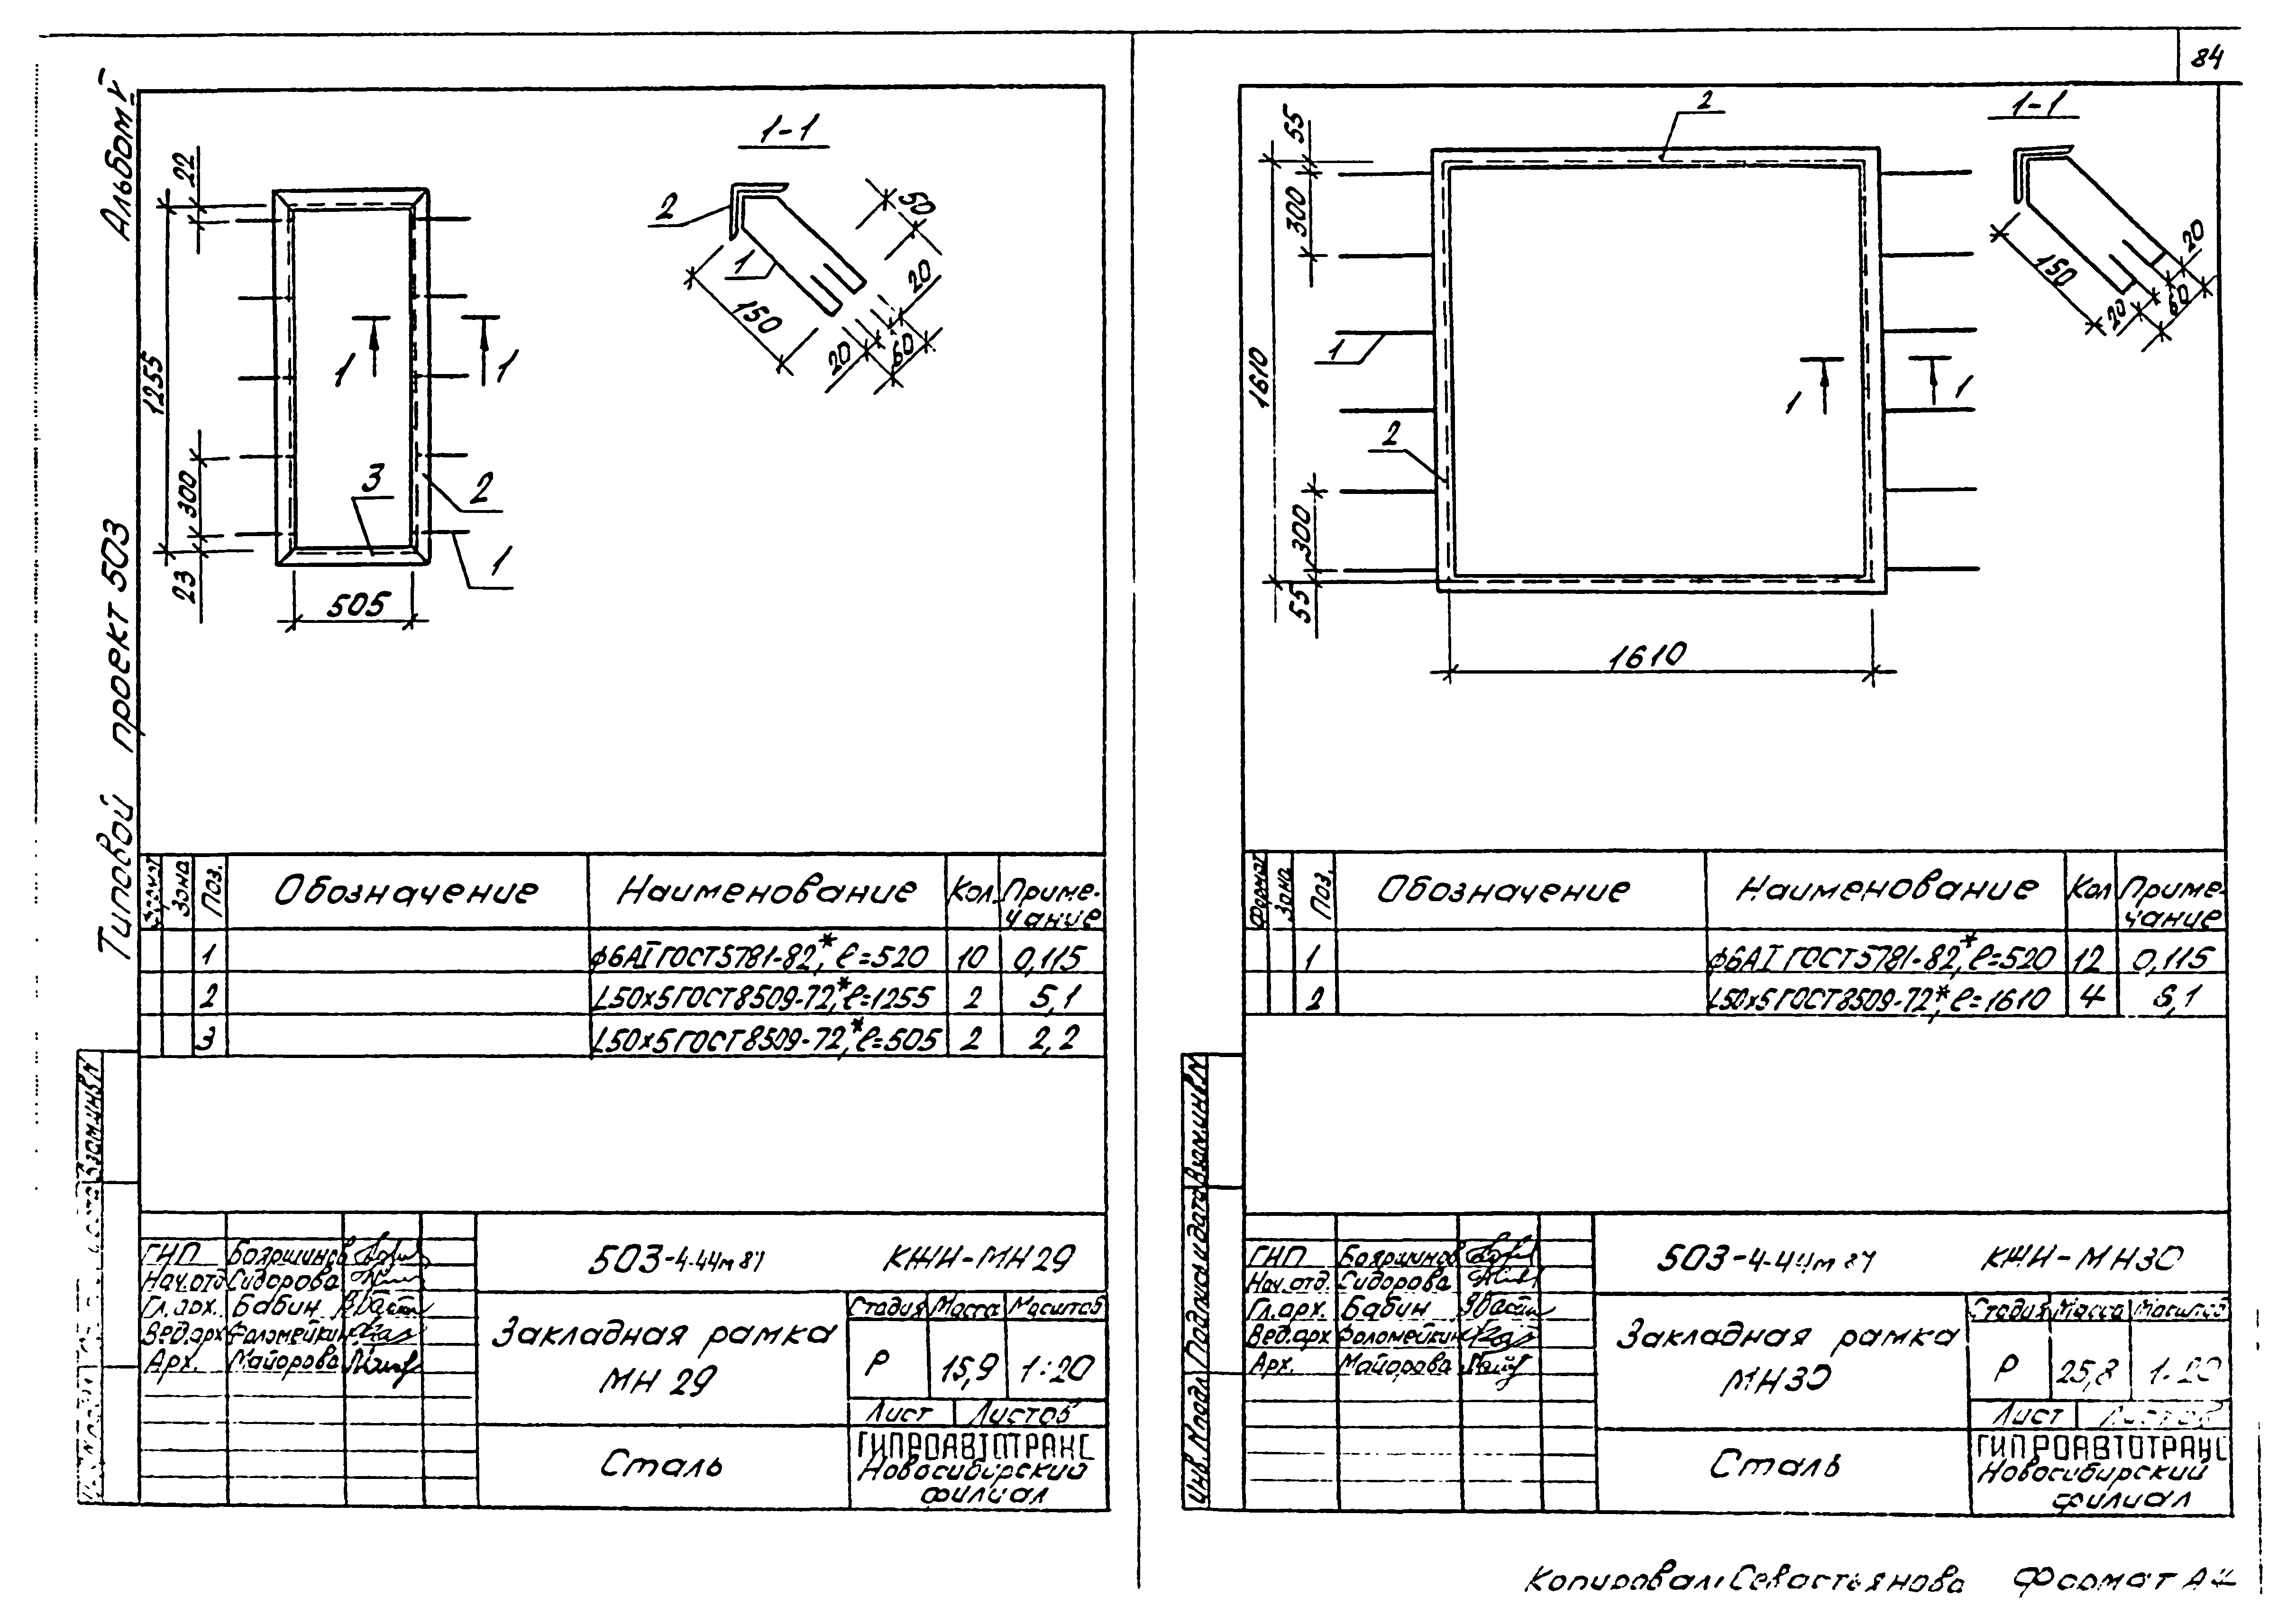 84
Альбом V
Типовой проект 503
1-1
22
1255
300
23
505
1
1
3
2
1
2
1
50
20
150
20
60
Зона
Поз.
Обозначение
Наименование
Кол.
Приме-
чание
1 ϕ6АI ГОСТ 5781-82,* ℓ=520 10 0,115
2 L50х5 ГОСТ 8509-72,* ℓ=1255 2 5,1
3 L50х5 ГОСТ 8509-72,* ℓ=505 2 2,2
Взам.инв.N
ГИП Бояршинов
Нач.отд Сидорова
Гл.арх. Бабин
Вед.арх Фоломейкин
Арх. Майорова
503-4-44м87 КЖИ-МН29
Закладная рамка
МН 29
Стадия Масса Масштаб
Р 15,9 1:20
Лист Листов
Сталь
ГИПРОАВТОТРАНС
Новосибирский
филиал
1-1
2
55
300
1610
1
2
1
1
300
55
1610
150
20
60
20
Формат
Зона
Поз.
Обозначение
Наименование
Кол
Приме-
чание
1 ϕ6АI ГОСТ 5781-82,* ℓ=520 12 0,115
2 L50х5 ГОСТ 8509-72,* ℓ=1610 4 6,1
Взам.инв.N
Подпись и дата
Инв.N подл.
ГИП Бояршинов
Нач.отд. Сидорова
Гл.арх. Бабин
Вед.арх Фоломейкин
Арх. Майорова
503-4-44м87 КЖИ-МН30
Закладная рамка
МН30
Стадия Масса Масштаб
Р 25,8 1:20
Лист Листов
Сталь
ГИПРОАВТОТРАНС
Новосибирский
филиал
Копировал: Севастьянова Формат А4